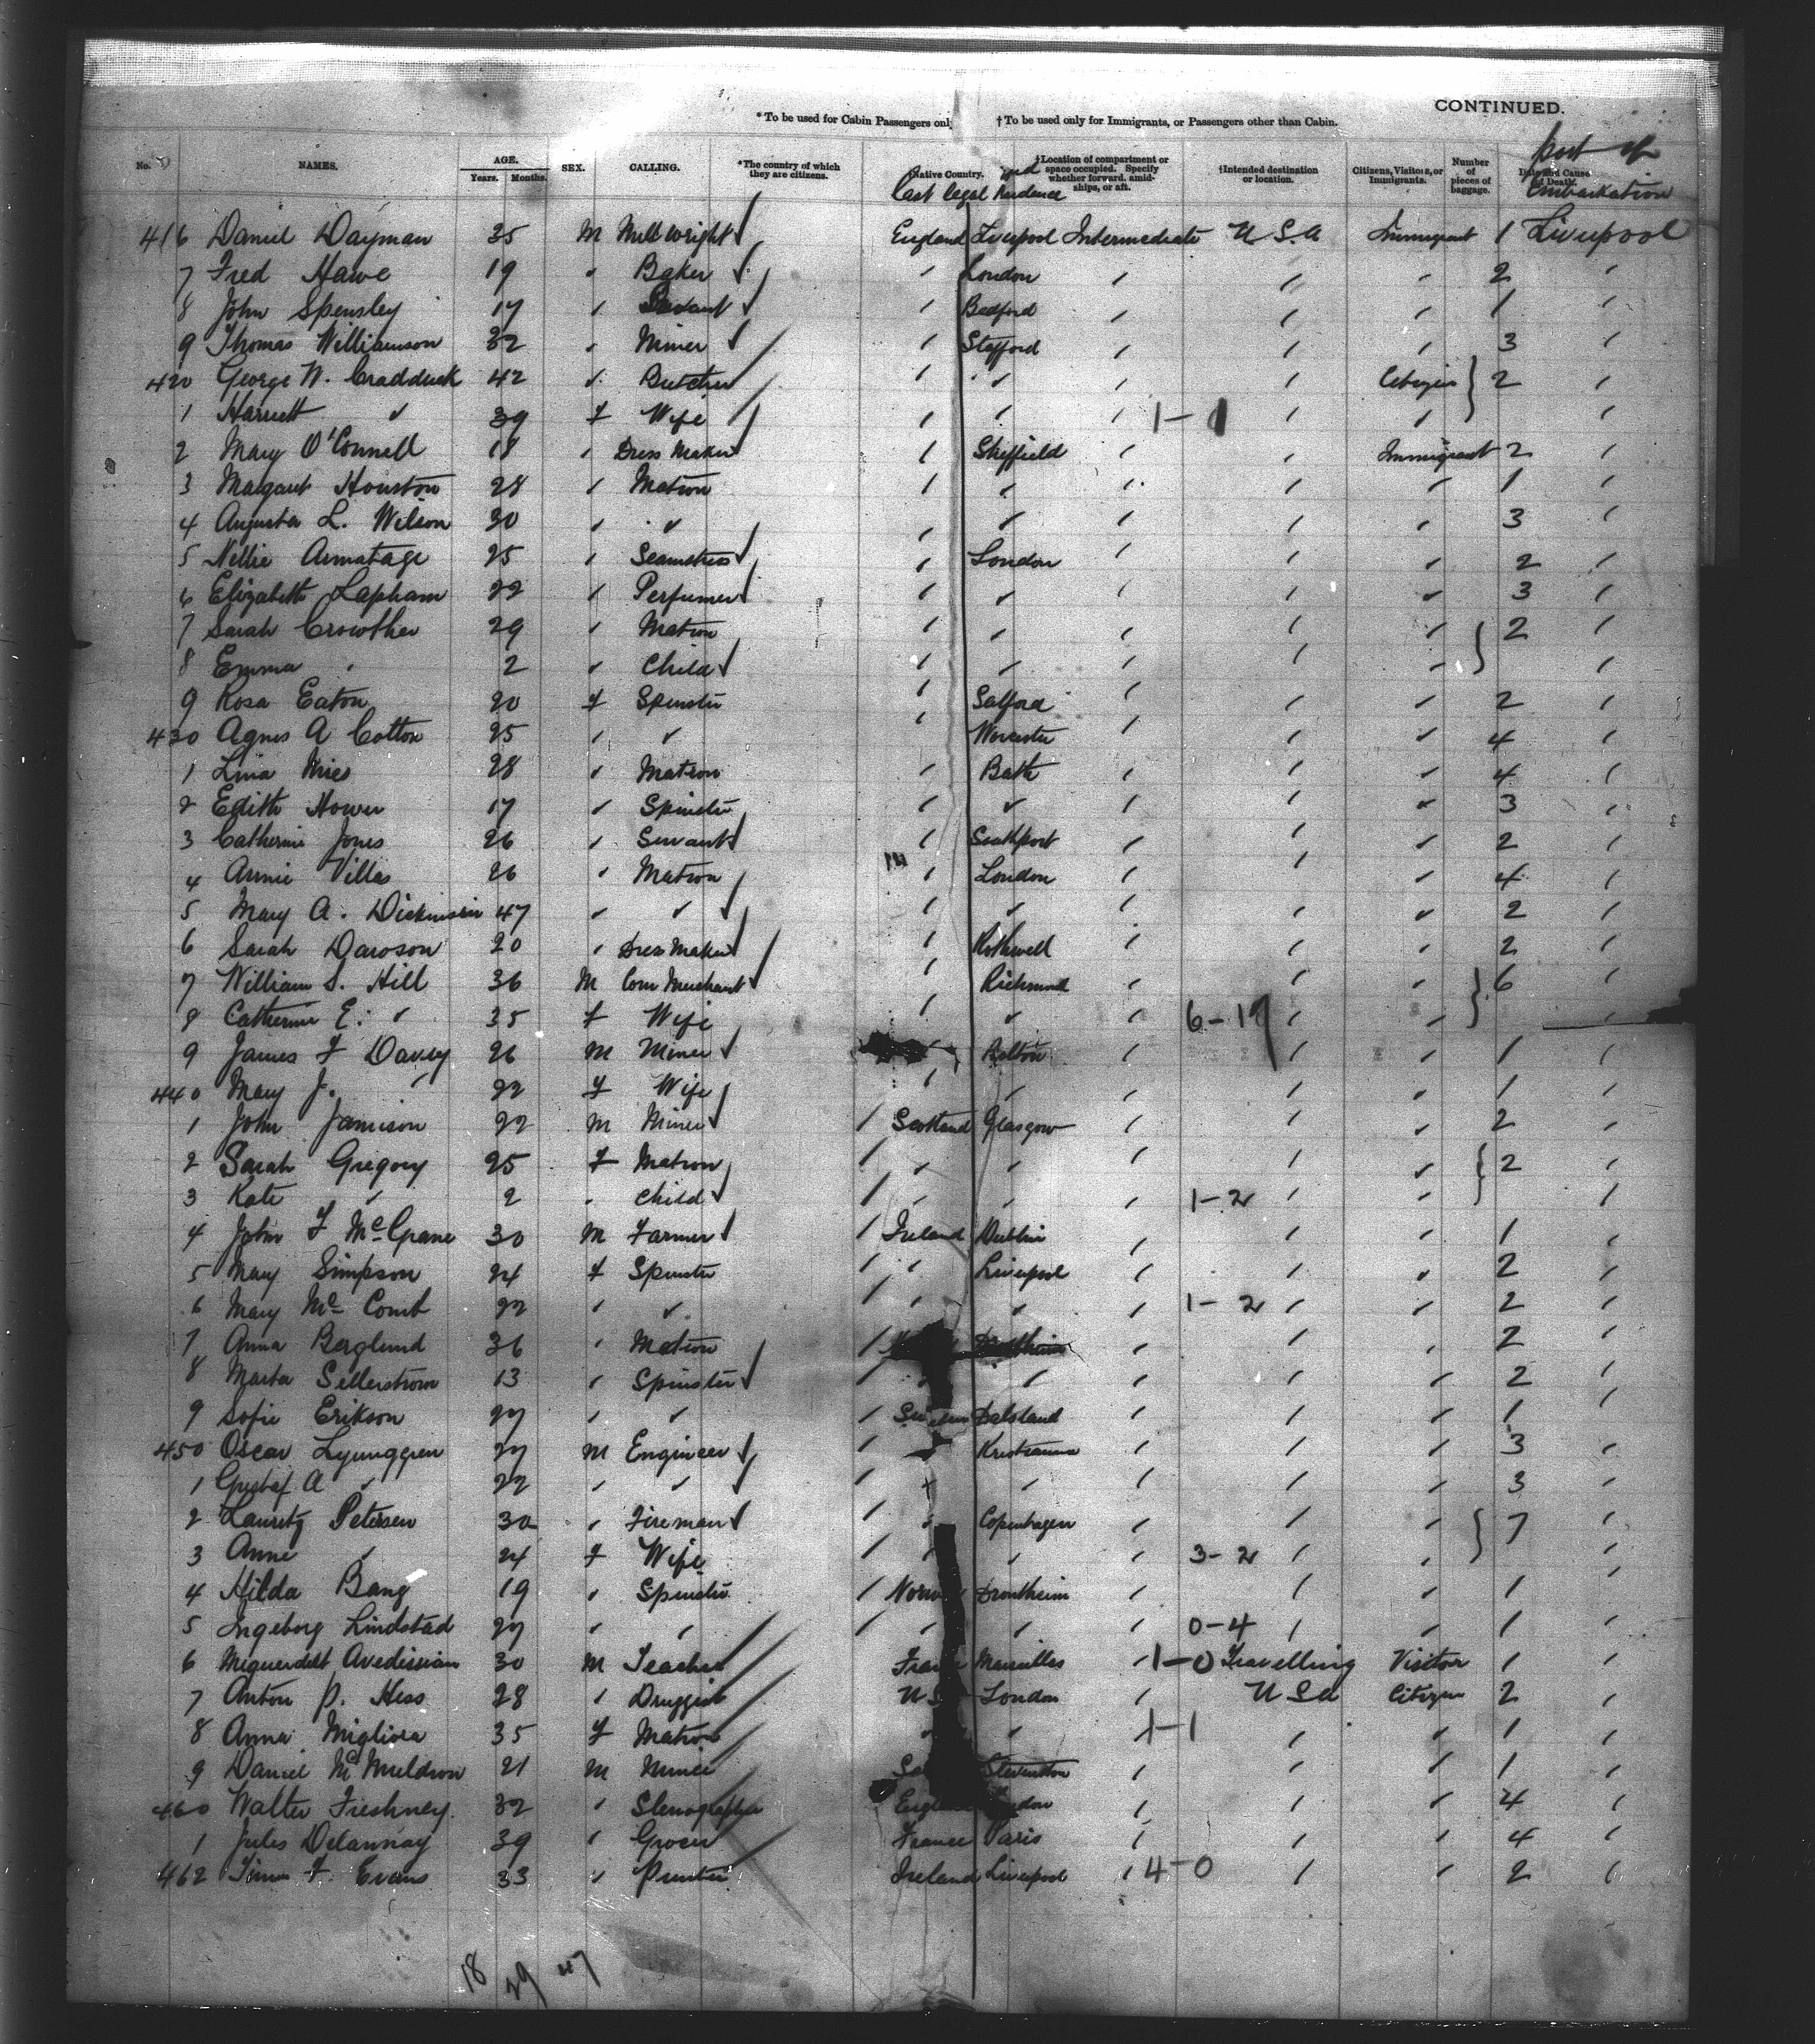 CONTINUED.
*To be used for Cabin Passengers only †To be used only for Immigrants, or Passengers other than Cabin.
port of
No. NAMES. AGE. Years. Months. SEX. CALLING. *The country of which they are citizens. †Native Country. †Location of compartment or space occupied. Specify whether forward, amidships, or aft. †Intended destination or location. Citizens, Visitors, or Immigrants. Number of pieces of baggage. Date and Cause of Death.
Last legal Residence Embarkation
416 Daniel Dayman 35 M Millwright England Liverpool Intermediate U.S.A Immigrant 1 Liverpool
7 Fred Hawe 19 " Baker " London " " " 2 "
8 John Spensley 17 " Servant " Bedford " " " 1 "
9 Thomas Williamson 32 " Miner " Stafford " " " 3 "
420 George W. Cradduck 42 " Butcher " " " " Citizen 2 "
1 Harriett " 39 F Wife " " 1-1 " " "
2 Mary O'Connell 18 " Dress Maker " Sheffield " " Immigrant 2 "
3 Magaret Houston 28 " Matron " " " " " 1 "
4 Augusta L. Wilson 30 " " " " " " " 3 "
5 Nellie Armatage 25 " Seamstress " London " " " 2 "
6 Elizabeth Lapham 22 " Perfumer " " " " " 3 "
7 Sarah Crowther 29 " Matron " " " " " 2 "
8 Emma " 2 " Child " " " " " "
9 Rosa Eaton 20 F Spinster " Salford " " " 2 "
430 Agnes A Cotton 25 " " " Worcester " " " 4 "
1 Lina Mies 28 " Matron " Bath " " " 4 "
2 Edith Hower 17 " Spinster " " " " " 3 "
3 Catherine Jones 26 " Servant " Southport " " " 2 "
4 Annie Villas 26 " Matron " London " " " 4 "
5 Mary A. Dickinson 47 " " " " " " " 2 "
6 Sarah Dawson 20 " Dress Maker " Rothwell " " " 2 "
7 William S. Hill 36 M Com Merchant " Richmond " " " 6 "
8 Catherine E. " 35 F Wife " " " 6-17 " " "
9 James F Davey 26 M Miner " Bolton " " " 1 "
440 Mary J. " 22 F Wife " " " " " 1 "
1 John Jamison 22 M Miner Scotland Glasgow " " " 2 "
2 Sarah Gregory 25 F Matron " " " " " 2 "
3 Kate " 2 " Child " " " 1-2 " " "
4 John F McGrane 30 M Farmer Ireland Dublin " " " 1 "
5 Mary Simpson 24 F Spinster " Liverpool " " " 2 "
6 Mary McComb 22 " " " " " 1-2 " " 2 "
7 Anna Berglund 36 " Matron " " " 2 "
8 Marta Sellerstrom 13 " Spinster " " " " " 2 "
9 Sofie Erikson 27 " " Sweden Dalsland " " " 1 "
450 Oscar Lyunggren 27 M Engineer Kristianna " " " 3 "
1 Gustaf A " 22 " " " " " " " 3 "
2 Lauretz Petersen 30 " Fireman " Copenhagen " " " 7 "
3 Anne " 24 F Wife " " " 3-2 " " "
4 Hilda Bang 19 " Spinster Norway Drontheim " " " 1 "
5 Ingeborg Lindstad 27 " " " " " 0-4 " " 1 "
6 Miguerditt Avedissian 30 M Teacher France Marseilles " 1-0 Travelling Visitor 1 "
7 Anton P. Hess 28 " Druggist U S London " U S A Citizen 2 "
8 Anna Migliora 35 F Matron " " 1-1 " " 1 "
9 Daniel McMuldrow 21 M Miner Stevenston " " " 1 "
460 Walter Freshney 32 " Stenographer England London " " " 4 "
1 Jules Delannay 39 " Grocer France Paris " " " 4 "
462 F. Evans 33 " Printer Ireland Liverpool " 4-0 " " 2 "
18 29 47